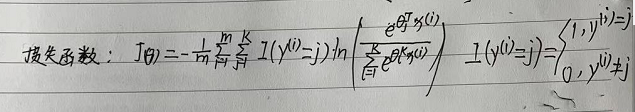 损失函数: J(θ)=-1/m ∑_{i=1}^{m} ∑_{j=1}^{K} I(y^{(i)}=j)·ln(e^{θ_j^T x^{(i)}} / ∑_{l=1}^{K} e^{θ_K x^{(i)}}) I(y^{(i)}=j)={1, y^{(i)}=j 0, y^{(i)}≠j